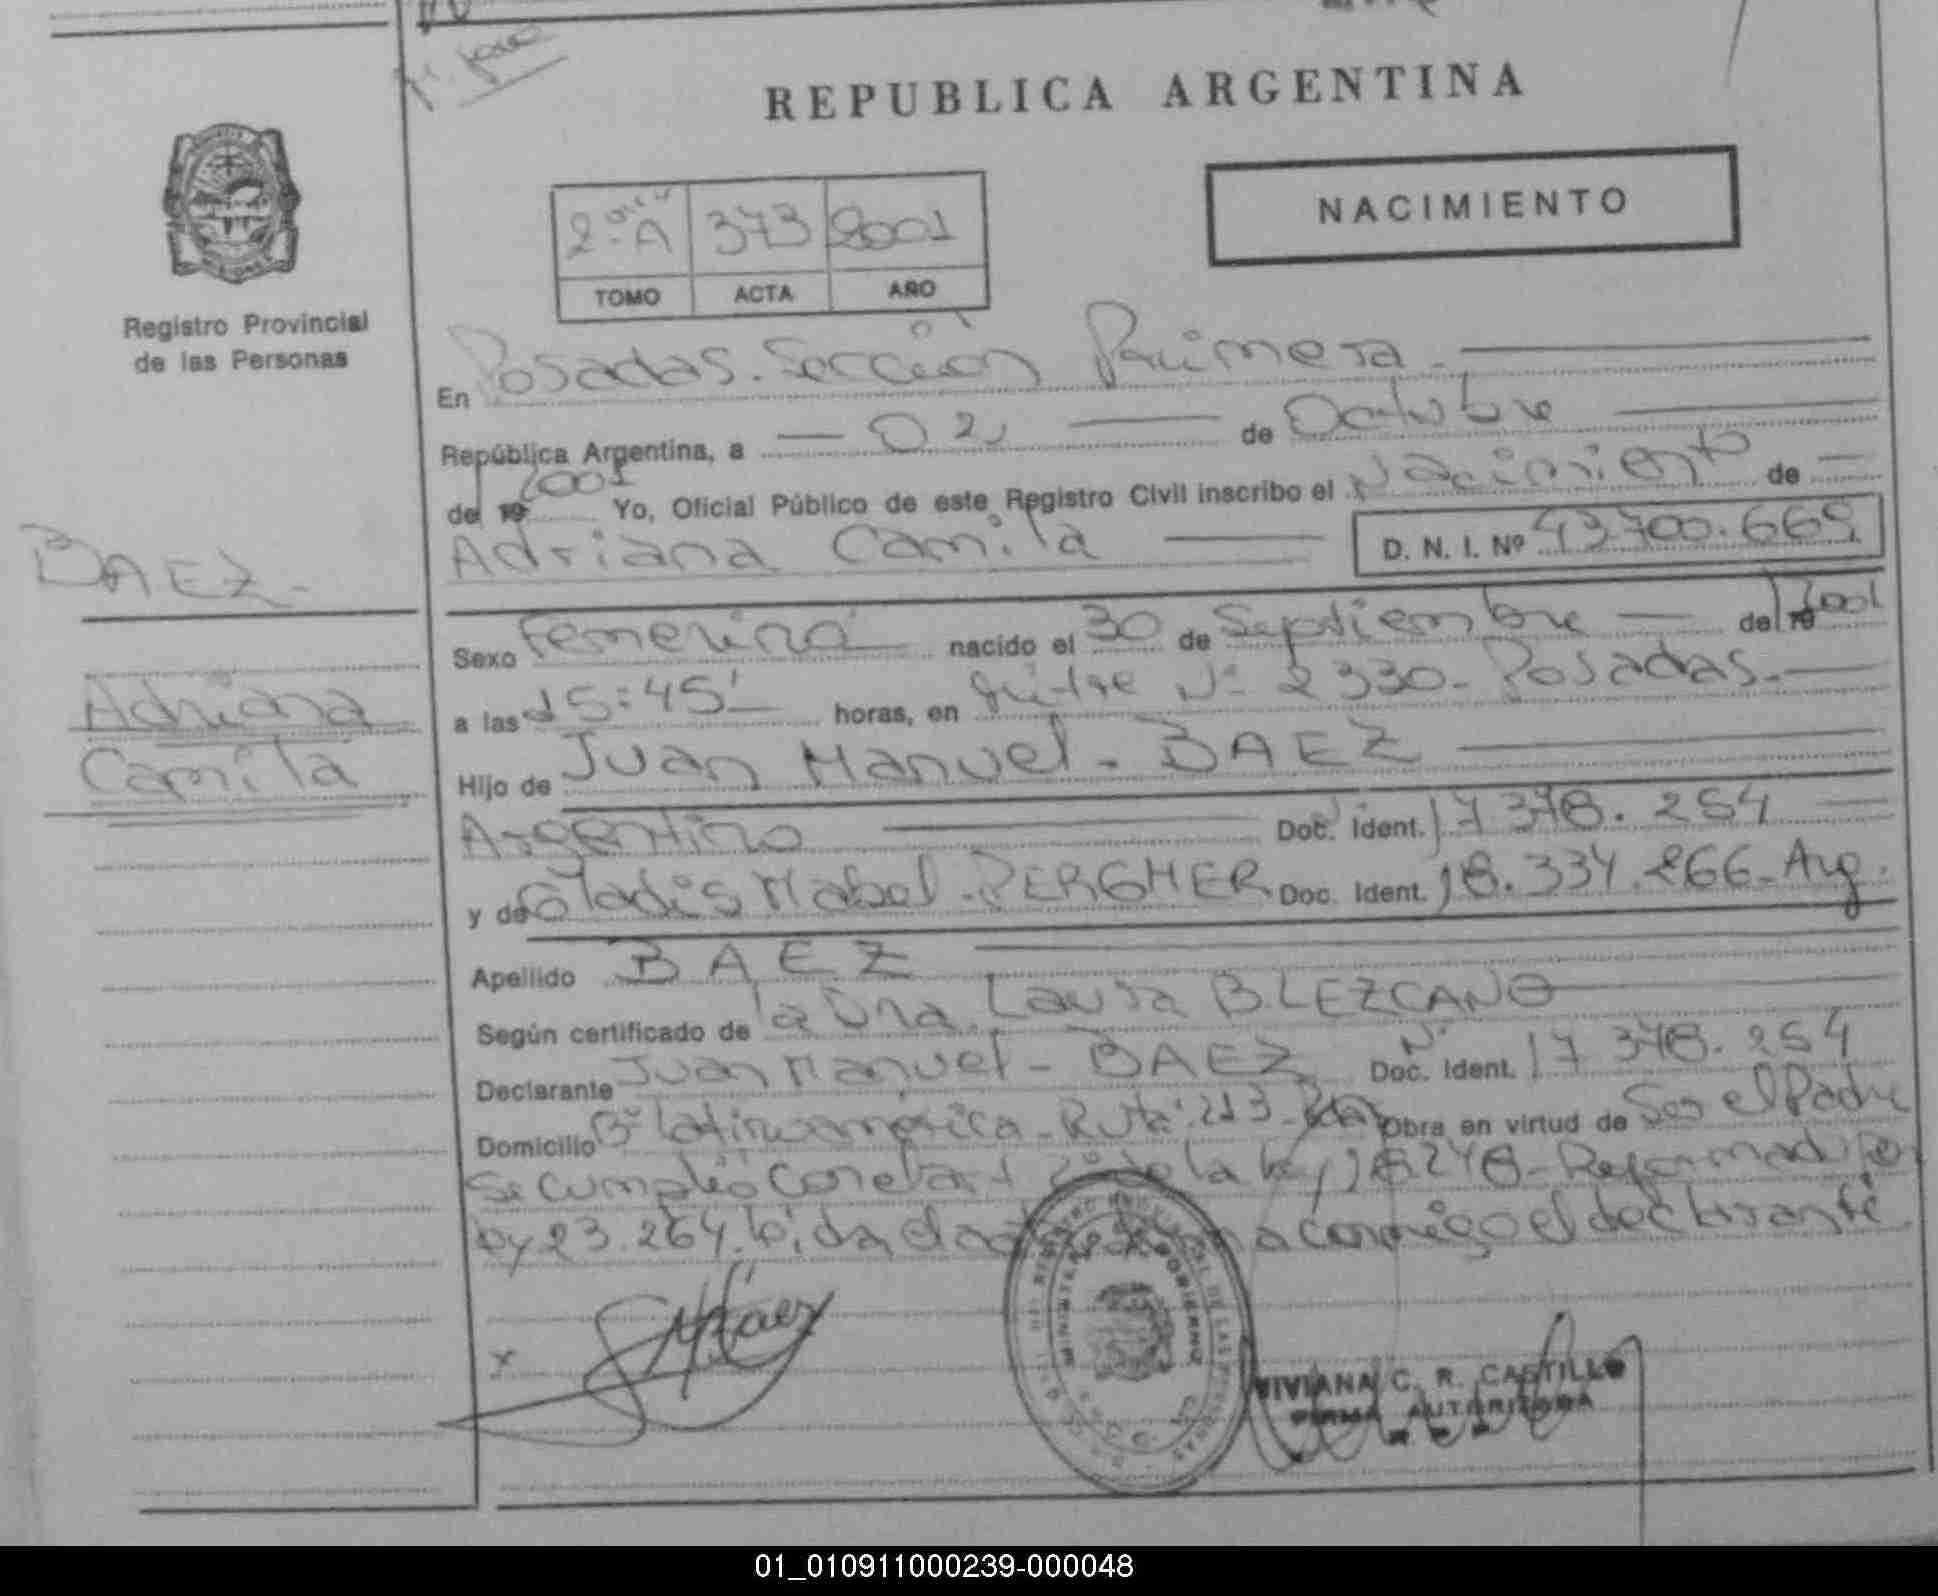 REPUBLICA ARGENTINA
NACIMIENTO
2º A 373 2001
TOMO ACTA AÑO
Registro Provincial
de las Personas
En Posadas. Sección Primera.
República Argentina, a 02 de Octubre
del 19 2001 Yo, Oficial Público de este Registro Civil inscribo el Nacimiento de
Adriana Camila D. N. I. Nº 43.700.669
BAEZ.
Adriana
Camila
Sexo Femenino nacido el 30 de Septiembre del 19 2001
a las 15:45' horas, en Nº 2330 - Posadas.
Hijo de Juan Manuel - BAEZ
Argentino Doc. Ident. 17.378.254
y de Gladis Mabel - PERGHER Doc. Ident. 18.334.266 - Arg.
Apellido BAEZ
Según certificado de la Dra. Laura BLEZCANO
Declarante Juan Manuel - BAEZ Doc. Ident. Nº 17.378.254
Domicilio Bº Latinoamérica - Ruta 213 - Obra en virtud de Ser el Padre
Se cumplió con el art 2º de la ley 18248 - Reformado por
ley 23.264. Leída el acta firma conmigo el declarante
X
MINISTERIO DE GOBIERNO
VIVIANA C. R. CASTILLO
FIRMA AUTORIZADA
01_010911000239-000048